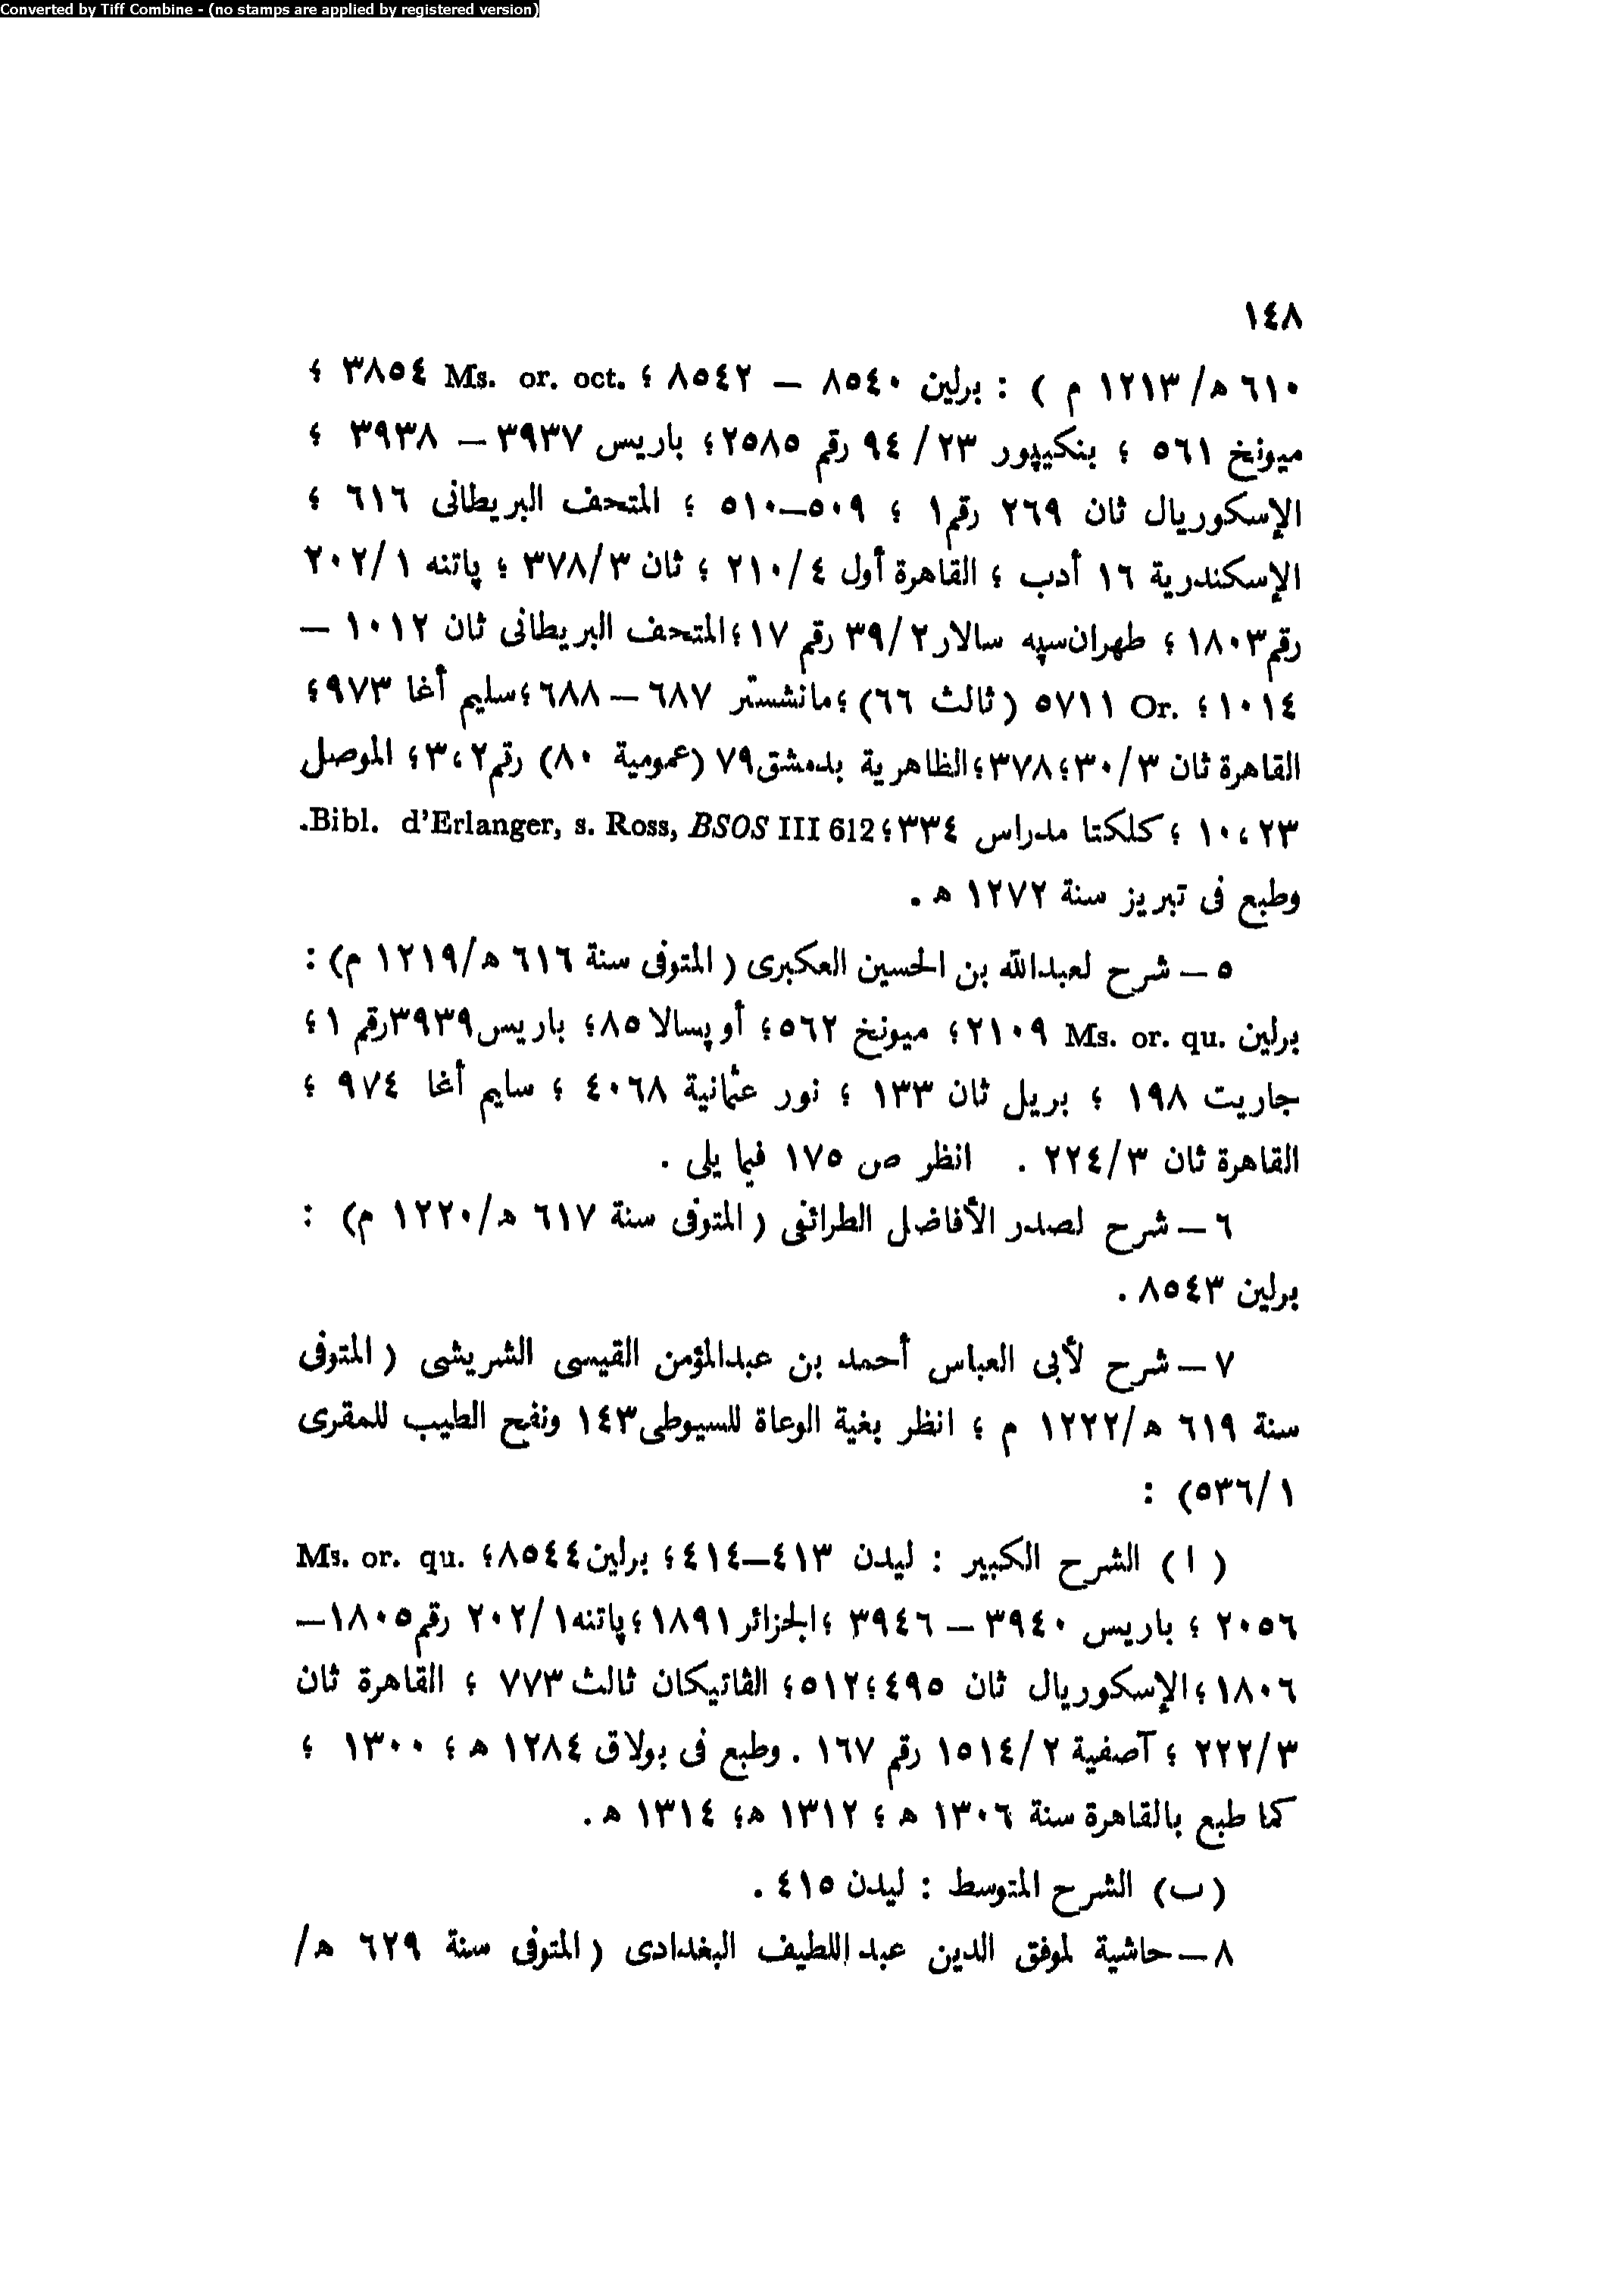 Converted by Tiff Combine - (no stamps are applied by registered version)
١٤٨
٦١٠ ه/ ١٢١٣ م ) : برلين ٨٥٤٠ – ٨٥٤٢ ؛ Ms. or. oct. ٣٨٥٤ ؛
ميونخ ٥٦١ ؛ بنكيپور ٢٣ / ٩٤ رقم ٢٥٨٥؛ باريس ٣٩٣٧ – ٣٩٣٨ ؛
الإسكوريال ثان ٢٦٩ رقم١ ؛ ٥٠٩–٥١٠ ؛ المتحف البريطانى ٦١٦ ؛
الإسكندرية ١٦ أدب ؛ القاهرة أول ٤/ ٢١٠ ؛ ثان ٣/ ٣٧٨ ؛ پاتنه ١ /٢٠٢
رقم١٨٠٣ ؛ طهران سپه سالار ٢/ ٣٩ رقم ١٧ ؛المتحف البريطانى ثان ١٠١٢ –
١٠١٤ ؛ Or. ٥٧١١ ( ثالث ٦٦) ؛مانشستر ٦٨٧ – ٦٨٨ ؛سليم أغا ٩٧٣ ؛
القاهرة ثان ٣/ ٣٠؛٣٧٨ ؛الظاهرية بدمشق٧٩ (عمومية ٨٠) رقم٣،٢ ؛ الموصل
٢٣ ،١٠ ؛ كلكتا مدراس ٣٣٤؛ Bibl. d'Erlanger, s. Ross, BSOS III 612.
وطبع فى تبريز سنة ١٢٧٢ ه .
٥ – شرح لعبدالله بن الحسين العكبرى ( المتوفى سنة ٦١٦ ه/١٢١٩ م) :
برلين Ms. or. qu. ٢١٠٩ ؛ ميونخ ٥٦٢؛ أوپسالا ٨٥؛ باريس٣٩٣٩رقم ١ ؛
جاريت ١٩٨ ؛ بريل ثان ١٣٣ ؛ نور عثمانية ٤٠٦٨ ؛ سايم أغا ٩٧٤ ؛
القاهرة ثان ٣/ ٢٢٤ . انظر ص ١٧٥ فيما يلى .
٦ – شرح لصدر الأفاضل الطرائفى ( المتوفى سنة ٦١٧ ه/١٢٢٠ م) :
برلين ٨٥٤٣ .
٧ – شرح لأبى العباس أحمد بن عبدالمؤمن القيسى الشريشى ( المتوفى
سنة ٦١٩ ه/١٢٢٢ م ؛ انظر بغية الوعاة للسيوطى١٤٣ ونفح الطيب للمقرى
١ /٥٣٦) :
( ا ) الشرح الكبير : ليدن ٤١٣–٤١٤؛ برلين٨٥٤٤؛ Ms. or. qu.
٢٠٥٦ ؛ باريس ٣٩٤٠ – ٣٩٤٦ ؛الجزائر ١٨٩١؛پاتنه١ /٢٠٢ رقم١٨٠٥–
١٨٠٦ ؛الإسكوريال ثان ٤٩٥؛٥١٢؛ الڤاتيكان ثالث ٧٧٣ ؛ القاهرة ثان
٣/ ٢٢٢ ؛ آصفية ٢/ ١٥١٤ رقم ١٦٧ . وطبع فى بولاق ١٢٨٤ ه ؛ ١٣٠٠ ؛
كما طبع بالقاهرة سنة ١٣٠٦ ه ؛ ١٣١٢ ه؛ ١٣١٤ ه .
(ب) الشرح المتوسط : ليدن ٤١٥ .
٨ – حاشية لموفق الدين عبد اللطيف البغدادى ( المتوفى سنة ٦٢٩ ه/